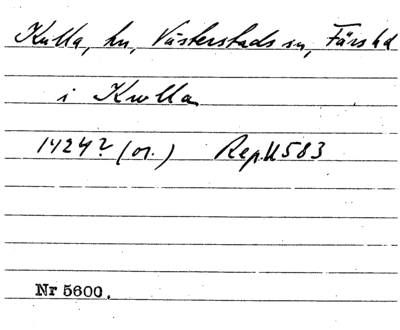 Kulla, hn, Västerstads sn, Färs hd
i Kwlla
1424? (or.) Rep. II 583
Nr 5600.